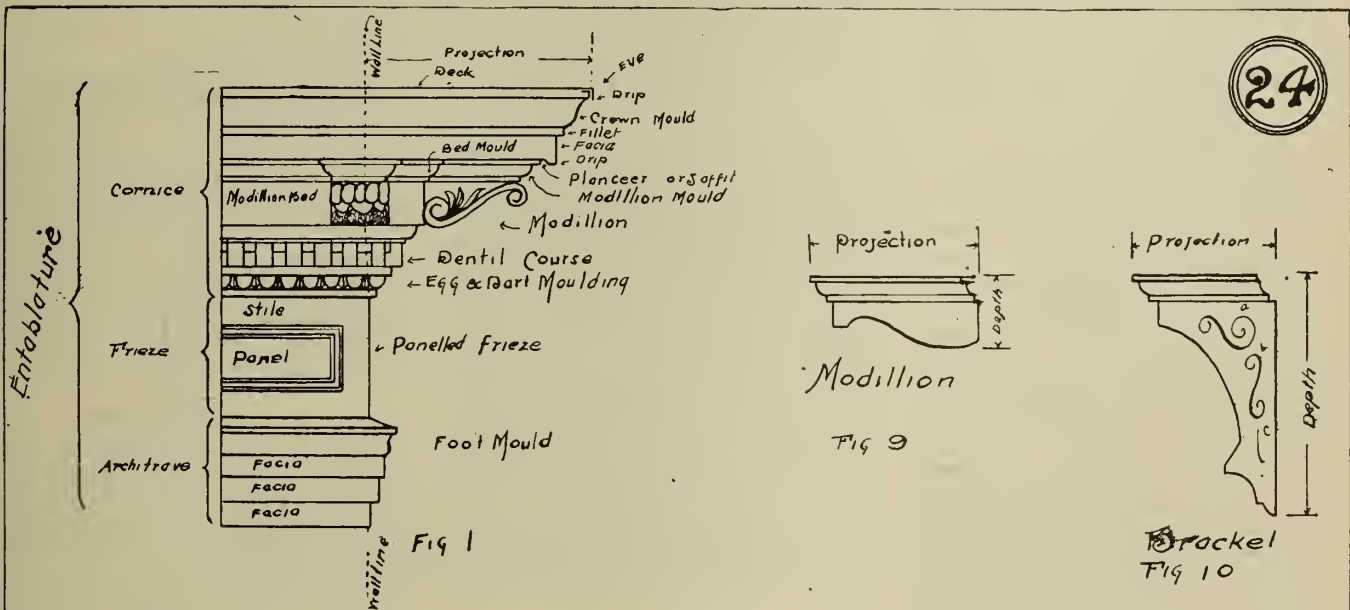 24
Wall Line
Projection
Deck
EVE
Drip
Crown Mould
Fillet
Facia
Bed Mould
Drip
Planceer or Saffit
Modillion Mould
Cornice
Modillion Bed
Modillion
Entablature
Dentil Course
Egg & Dart Moulding
Stile
Frieze
Panel
Panelled frieze
Foot Mould
Architrave
Facia
Facia
Facia
Fig 1
Wall line
Projection
Depth
Modillion
Fig 9
Projection
Depth
Bracket
Fig 10